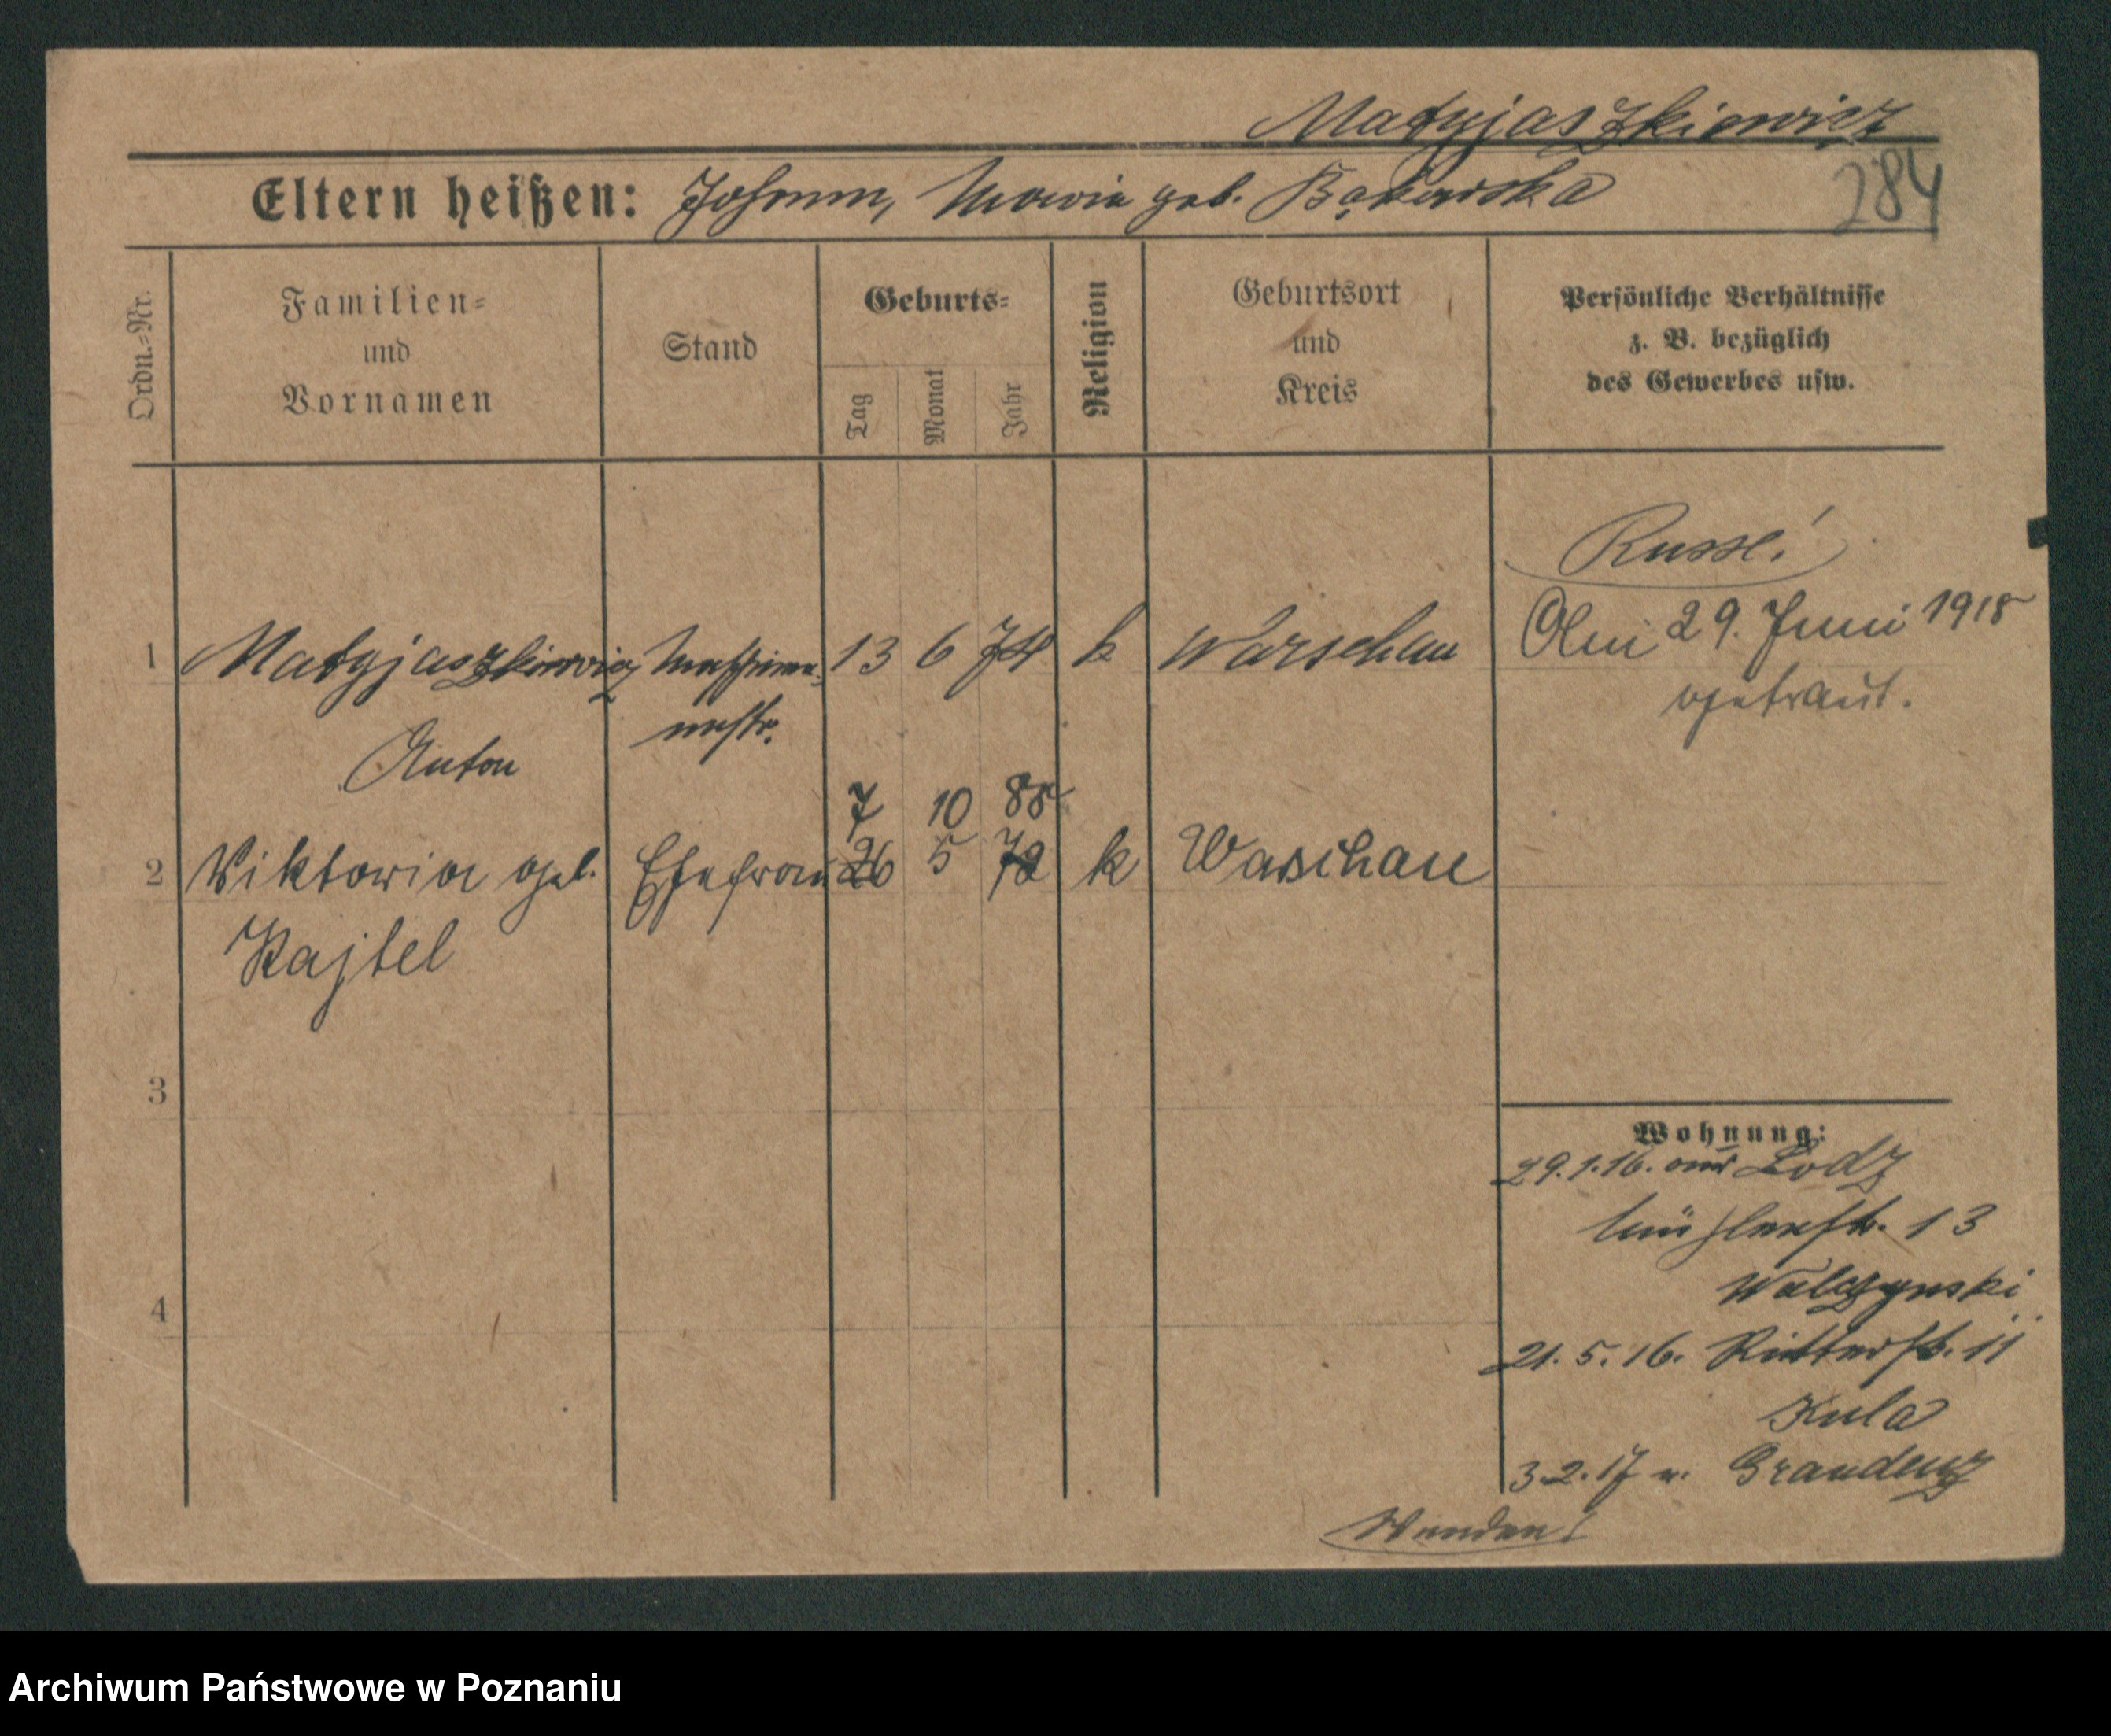 Matyjaszkiewicz
284
Eltern heißen: Johann, Maria geb. Bąkowska
Ordn.-Nr.
Familien-
und
Vornamen
Stand
Geburts-
Tag
Monat
Jahr
Religion
Geburtsort
und
Kreis
Persönliche Verhältnisse
z. B. bezüglich
des Gewerbes usw.
Russe!
1 Matyjaszkiewicz 13 6 74 k Warschau
Am 29. Juni 1918
getraut.
mstr.
Anton
7 10 88
2 Viktoria geb. Ehefrau 26 5 72 k Waschau
Kajtel
3
4
Wohnung:
29.1.16. aus Lodz
13
Walczynski
21.5.16. Ritterstr. 11
Kula
3.2.17 n. Graudenz
Wenden!
Archiwum Państwowe w Poznaniu